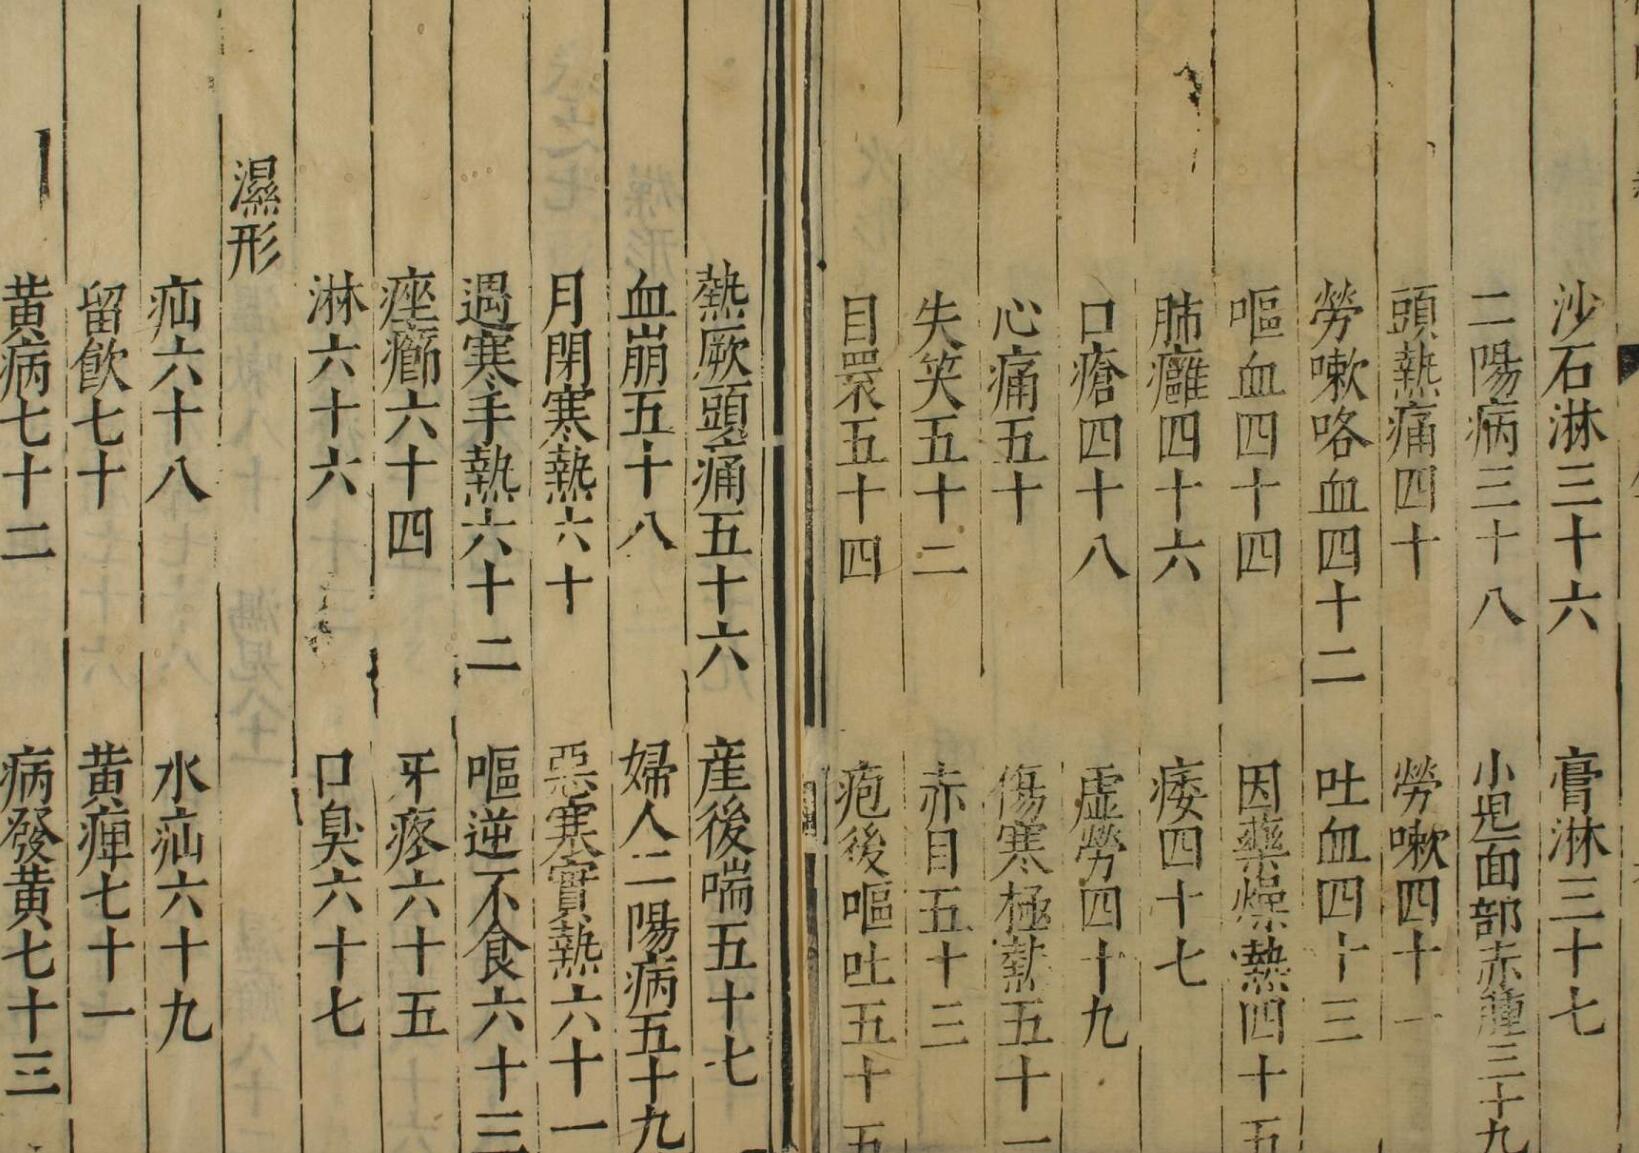 沙石淋三十六　膏淋三十七
二陽病三十八　小児面部赤腫三十九
頭熱痛四十　勞嗽四十一
勞嗽咯血四十二　吐血四十三
嘔血四十四　因藥燥熱四十五
肺癰四十六　痿四十七
口瘡四十八　虛勞四十九
心痛五十　傷寒極熱五十一
失笑五十二　赤目五十三
目睘五十四　疱後嘔吐五十五
熱厥頭痛五十六　産後喘五十七
血崩五十八　婦人二陽病五十九
月閉寒熱六十　惡寒實熱六十一
遇寒手熱六十二　嘔逆不食六十三
痤癤六十四　牙疼六十五
淋六十六　口臭六十七
濕形
疝六十八　水疝六十九
留飲七十　黄疸七十一
黄病七十二　病發黄七十三